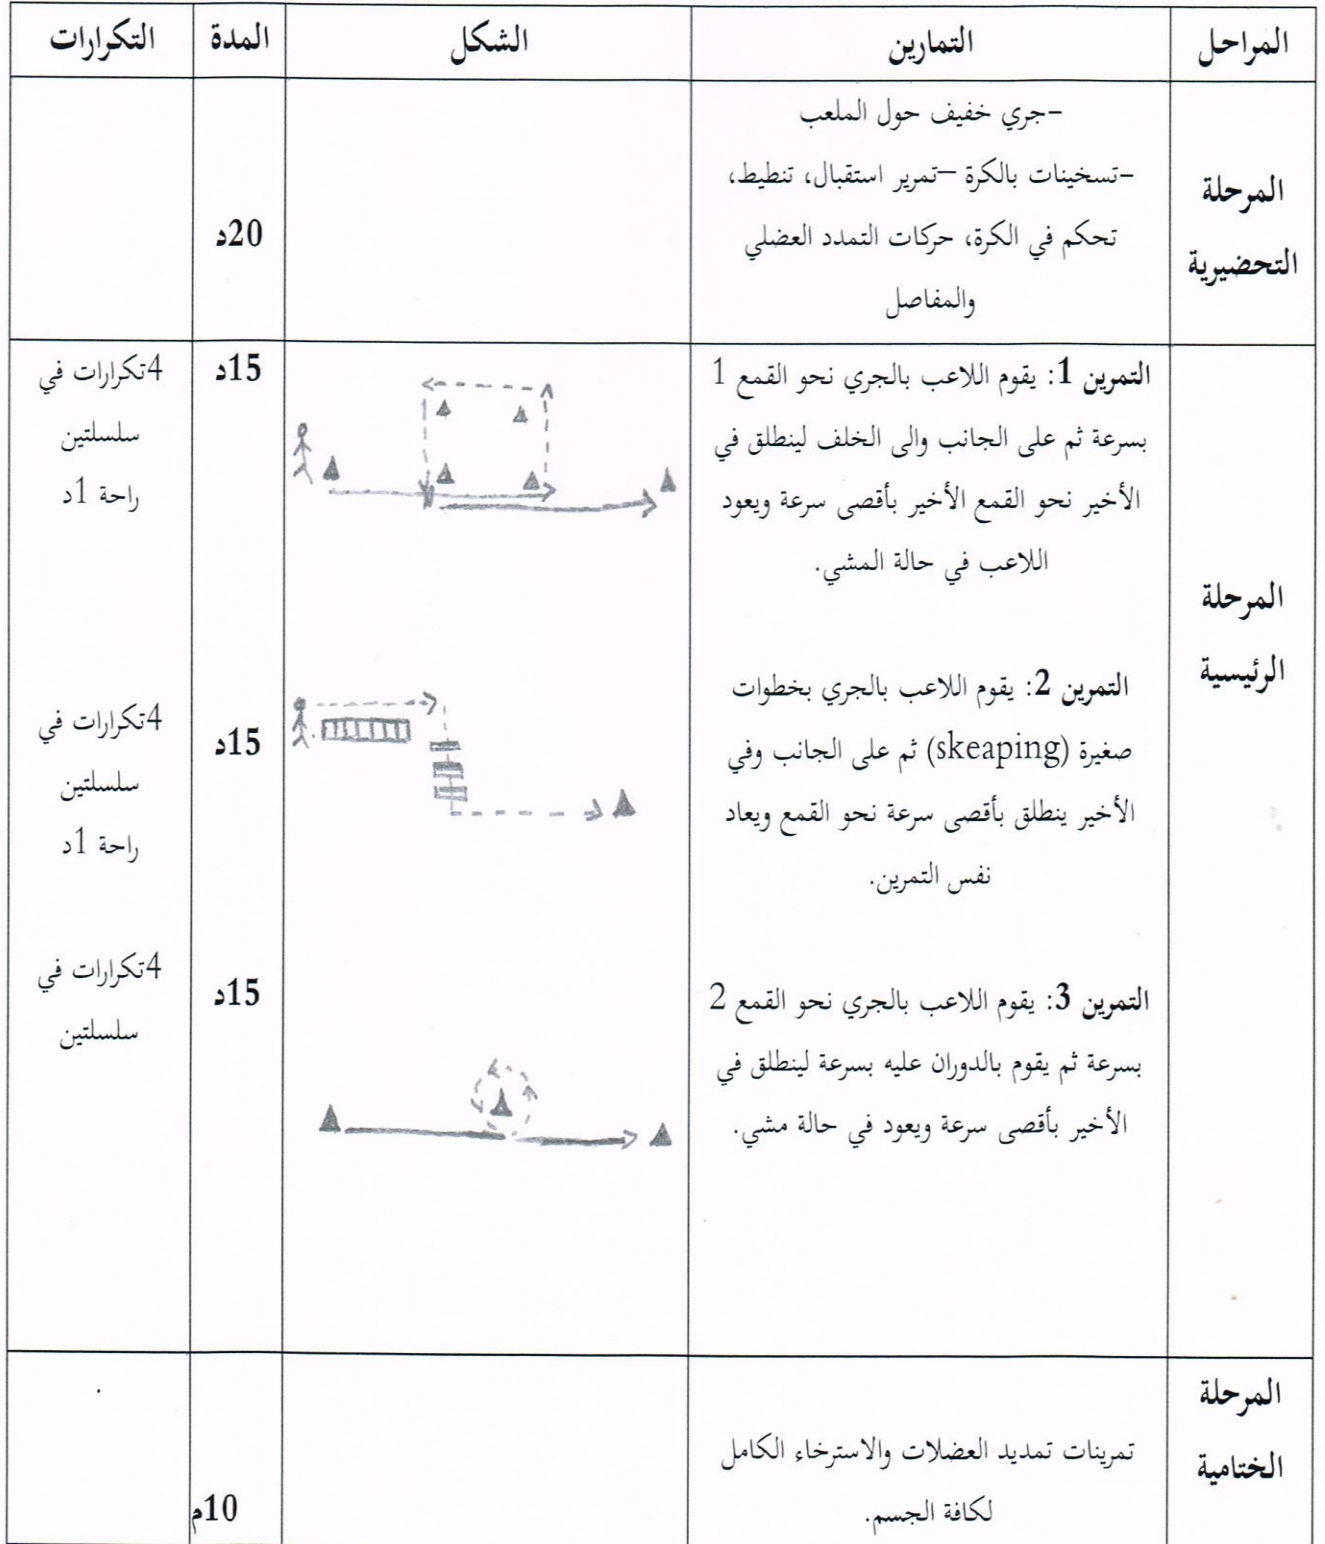 المراحل
التمارين
الشكل
المدة
التكرارات
المرحلة
التحضيرية
-جري خفيف حول الملعب
-تسخينات بالكرة –تمرير استقبال، تنطيط،
تحكم في الكرة، حركات التمدد العضلي
والمفاصل
20د
المرحلة
الرئيسية
التمرين 1: يقوم اللاعب بالجري نحو القمع 1
بسرعة ثم على الجانب والى الخلف لينطلق في
الأخير نحو القمع الأخير بأقصى سرعة ويعود
اللاعب في حالة المشي.
15د
4تكرارات في
سلسلتين
راحة 1د
التمرين 2: يقوم اللاعب بالجري بخطوات
صغيرة (skeaping) ثم على الجانب وفي
الأخير ينطلق بأقصى سرعة نحو القمع ويعاد
نفس التمرين.
15د
4تكرارات في
سلسلتين
راحة 1د
التمرين 3: يقوم اللاعب بالجري نحو القمع 2
بسرعة ثم يقوم بالدوران عليه بسرعة لينطلق في
الأخير بأقصى سرعة ويعود في حالة مشي.
15د
4تكرارات في
سلسلتين
المرحلة
الختامية
تمرينات تمديد العضلات والاسترخاء الكامل
لكافة الجسم.
10م